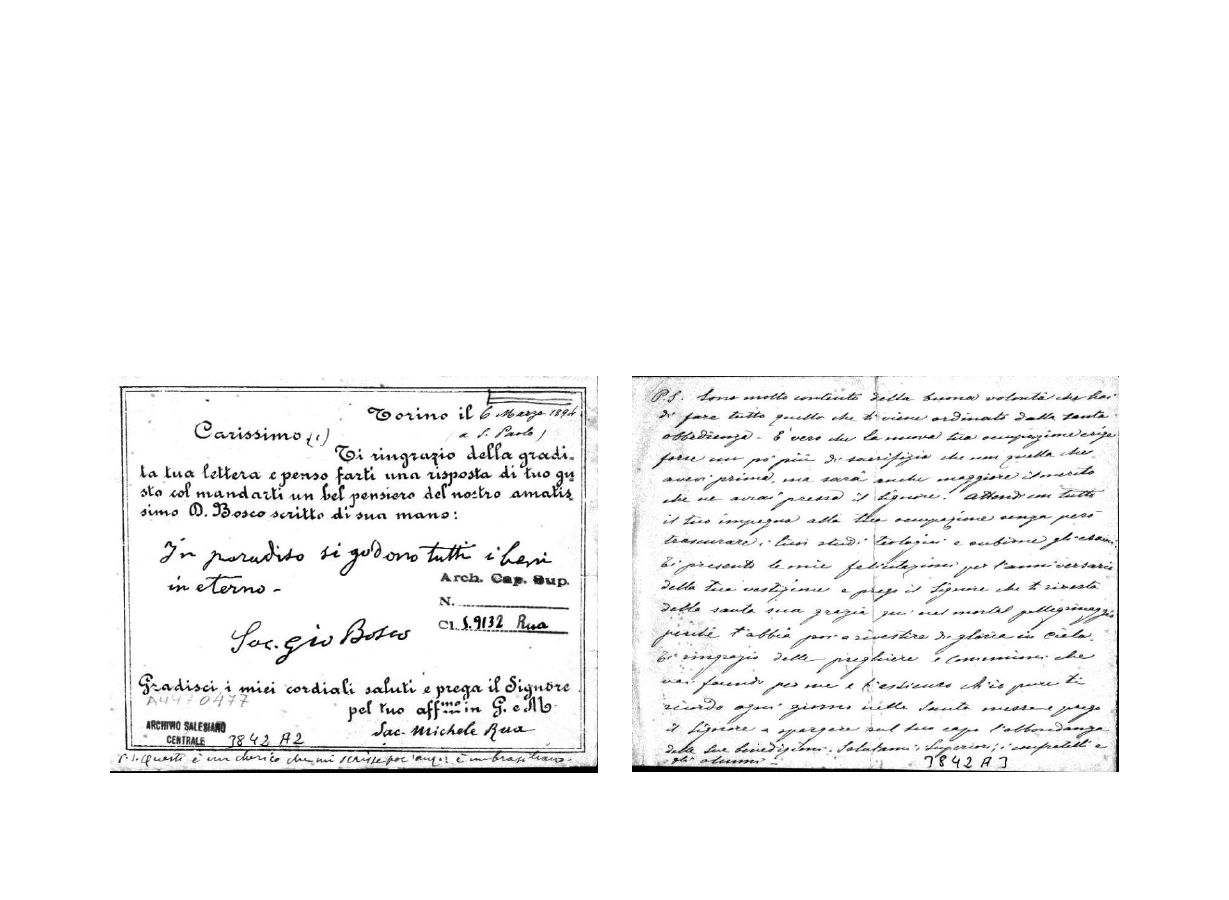 Torino il 6 Marzo 1894
(a S. Paolo)
Carissimo (1)
Ti ringrazio della gradi-
ta tua lettera e penso farti una risposta di tuo gu
sto col mandarti un bel pensiero del nostro amatis
simo D. Bosco scritto di sua mano:
In paradiso si godono tutti i beni
in eterno -
Arch. Cap. Sup.
N.
Cl. S.9132 Rua
Sac. Gio Bosco
Gradisci i miei cordiali saluti e prega il Signore
A4470477
pel tuo affmo in G. e M.
Sac. Michele Rua
ARCHIVIO SALESIANO
CENTRALE
3842 A2
Questi è un chierico che mi scrisse è un brasiliano.
P.S. Sono molto contento della buona volontà che hai
di fare tutto quello che ti viene ordinato dalla santa
obbedienza - È vero che la nuova tua occupazione esige
forse un pò più di sacrifizio che non quella che
avevi prima, ma sarà anche maggiore il merito
che ne avrai presso il Signore. Attendi con tutto
il tuo impegno alla tua occupazione senza però
trascurare i tuoi studi teologici e subirne gli esami
Ti presento le mie felicitazioni per l'anniversario
della tua vestizione e prego il Signore che ti rivesta
della santa sua grazia qui nel mortal pellegrinaggio
perchè t'abbia poi a rivestire di gloria in cielo.
Ti ringrazio delle preghiere e Comunioni che
vai facendo per me e t'assicuro ch'io pure ti
ricordo ogni giorno nella Santa messa e prego
il Signore a spargere sul tuo capo l'abbondanza
delle sue benedizioni. Salutami i Superiori, i confratelli e
gli alunni -
3842 A3